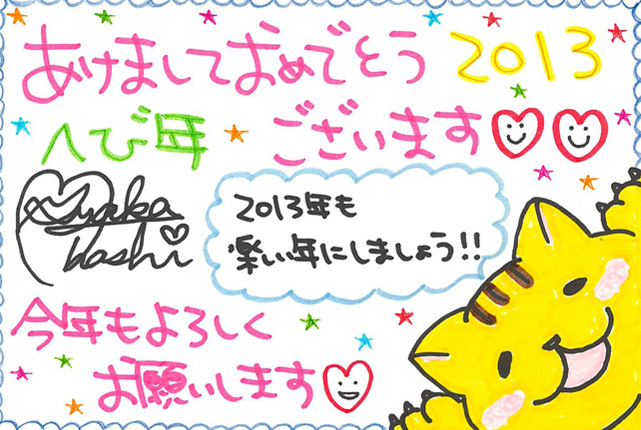 あけましておめでとう 2013
へび年 ございます
2013年も
楽しい年にしましょう!!
今年もよろしく
お願いします